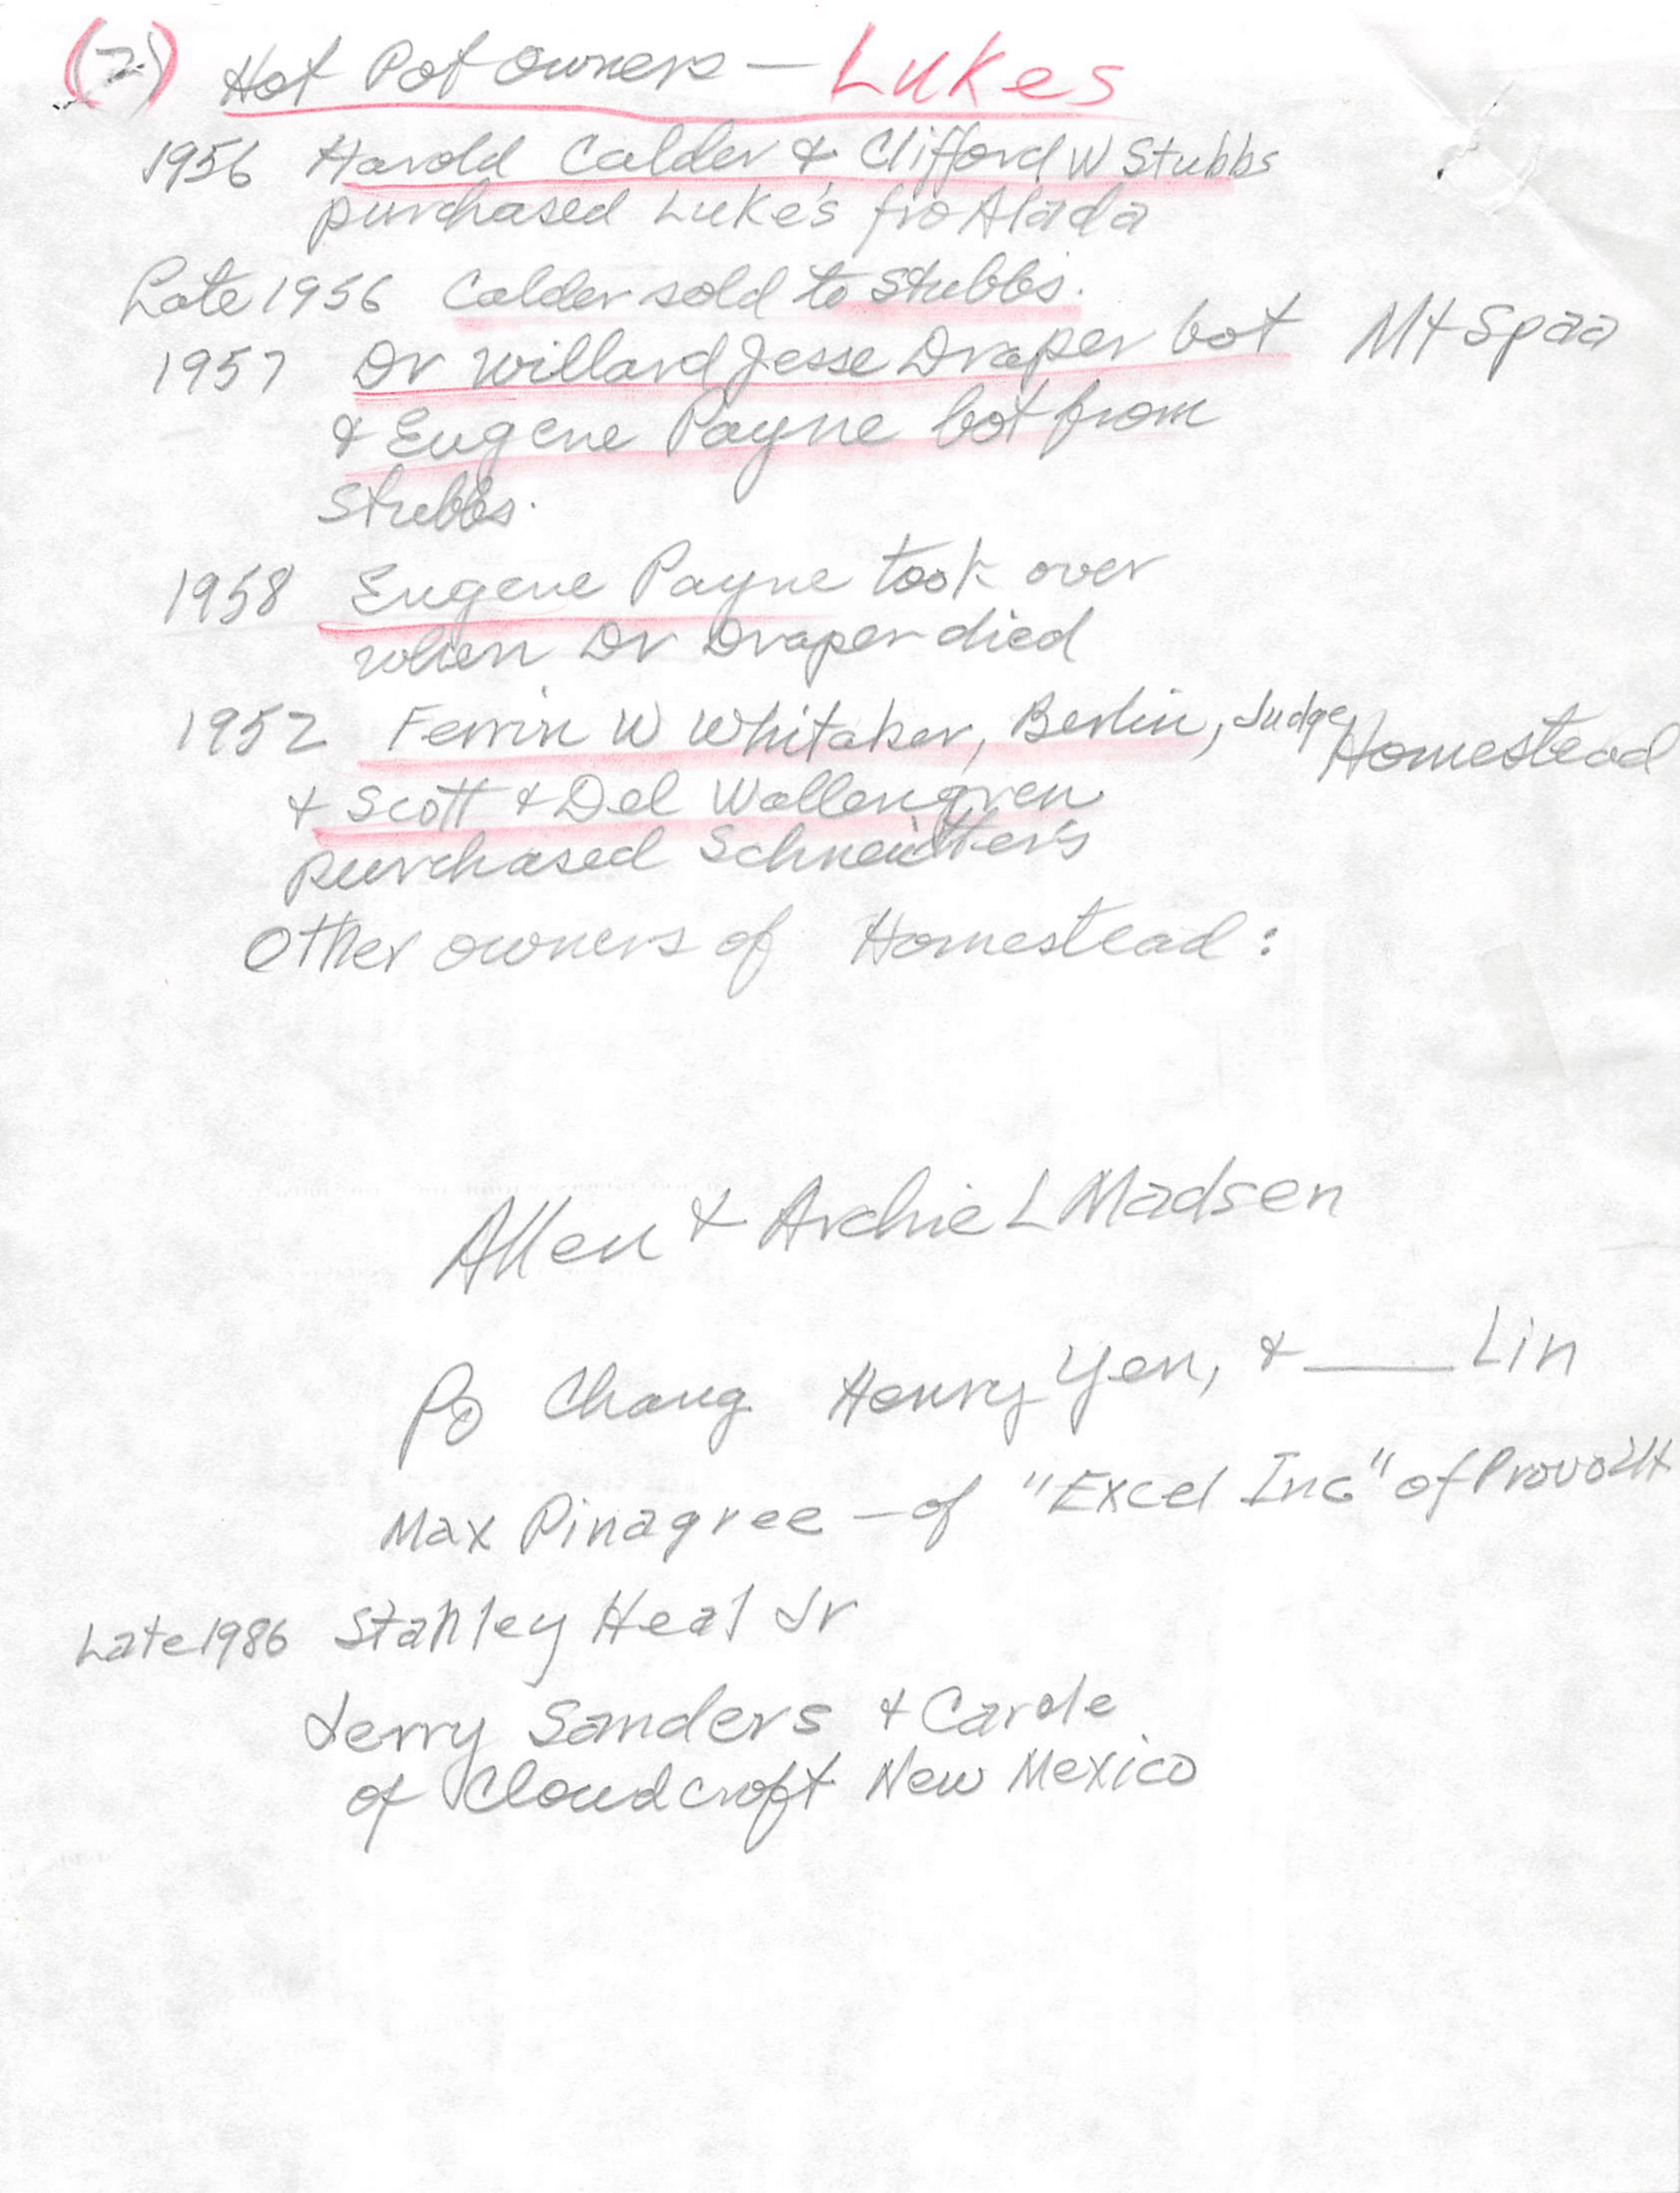 (2) Hot Pot owners — Lukes
1956 Harold Calder & Clifford W Stubbs
purchased Luke's fro Alada
Late 1956 Calder sold to Stubbs.
1957 Dr Willard Jesse Draper bot Mt Spaa
& Eugene Payne bot from
Stubbs.
1958 Eugene Payne took over
when Dr Draper died
1952 Ferrin W Whitaker, Berlin, Judge, Homestead
& Scott & Del Wallengren
purchased Schneitter's
Other owners of Homestead:
Allen & Archie L Madsen
Po Chang Henry Yen, & ____ Lin
Max Pinagree — of "Excel Inc" of Provo Ut
Late 1986 Stanley Heal Jr
Jerry Sanders & Carole
of Cloudcroft New Mexico